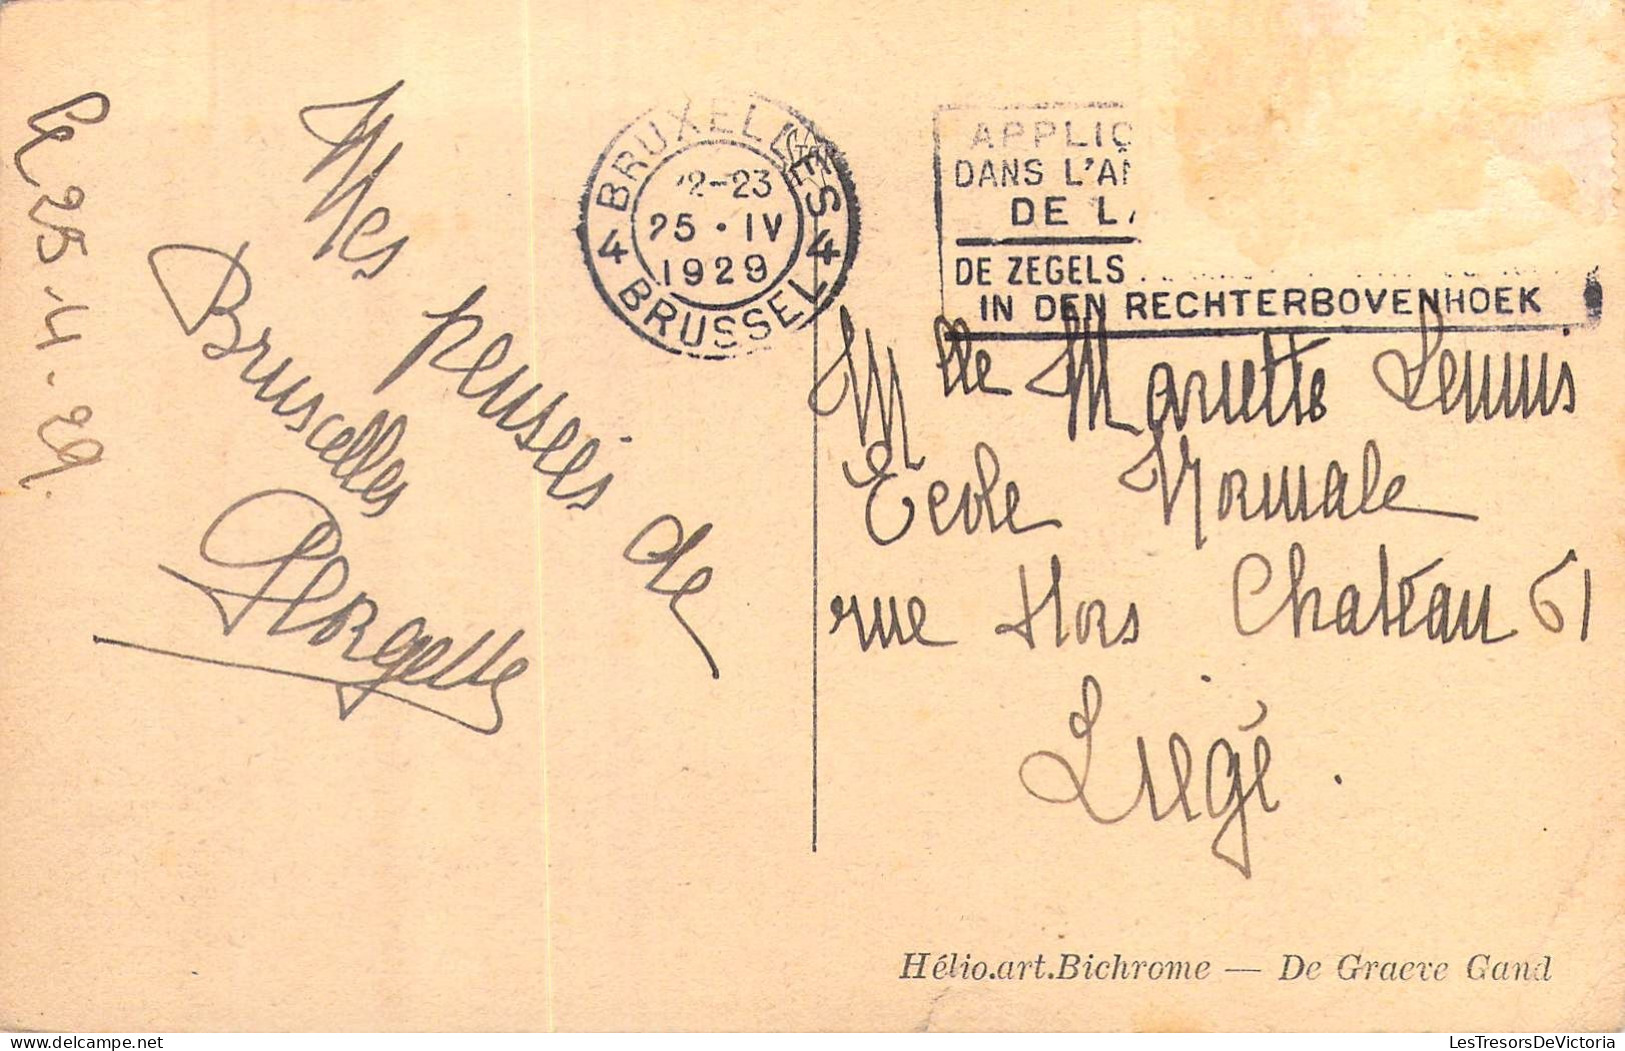 Le 25-4-29.
Mes pensées de
Bruxelles
Georgette
BRUXELLES
22-23
25 · IV
1929
4 BRUSSEL 4
APPLIQ
DANS L'AN
DE LA
DE ZEGELS
IN DEN RECHTERBOVENHOEK
Mlle Mariette
Ecole Normale
rue Hors Château 61
Liège.
Hélio.art.Bichrome — De Graeve Gand
LesTresorsDeVictoria
delcampe.net